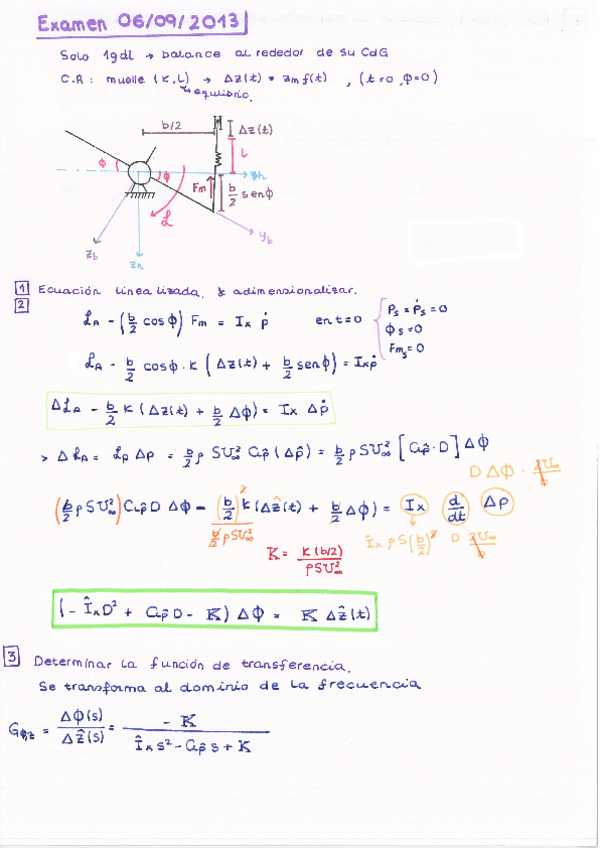 Examen 06/09/2013
Solo 1gdl → balance alrededor de su CdG
C.R: muelle (K, L) → Δz(t) = zm f(t) , (t=0, ϕ=0)
↳ equilibrio.
b/2
Δz(t)
l
ϕ
ϕ
yh
Fm
b/2 senϕ
L
yb
zb
zh
1 Ecuación linealizada. & adimensionalizar.
2
LA - (b/2 cosϕ) Fm = Ix ṗ en t=0 { ps = ṗs = 0
ϕs = 0
Fms = 0
LA - b/2 cosϕ · K (Δz(t) + b/2 senϕ) = Ix ṗ
ΔLA - b/2 K (Δz(t) + b/2 Δϕ) = Ix Δṗ
> ΔLA = Lp Δp = b/2 ρSU∞² Clp̂ (Δp̂) = b/2 ρSU∞² [Clp̂ · D] Δϕ
D Δϕ · 2U∞/b
(b/2 ρSU∞²) Clp̂ D Δϕ - (b/2)² K (Δẑ(t) + b/2 Δϕ) = Ix d/dt Δp
b/2 ρSU∞²
Îx ρS(b/2)² D 2U∞/b
K = K(b/2)/ρSU∞²
(-ÎxD² + Clp̂ D - K) Δϕ = K Δẑ(t)
3 Determinar la función de transferencia.
Se transforma al dominio de la frecuencia
Gϕz = Δϕ(s)/Δẑ(s) = -K/Îx s² - Clp̂ s + K